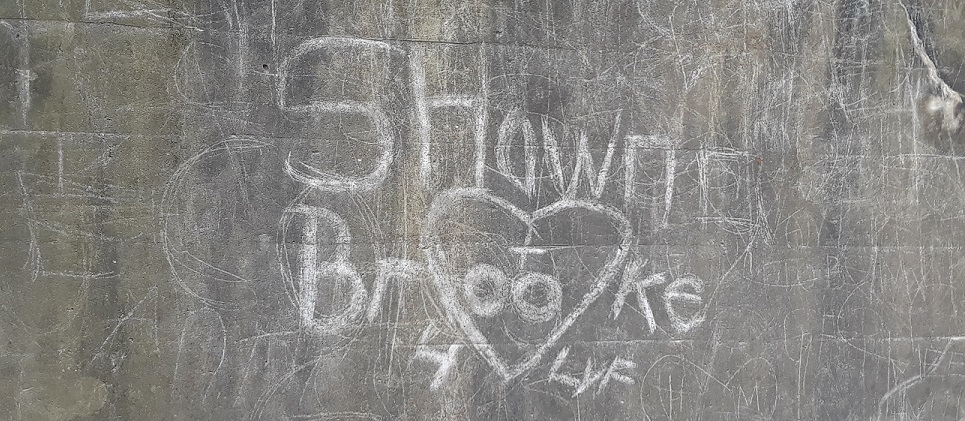 SHawn
Brooke
4 Lyf